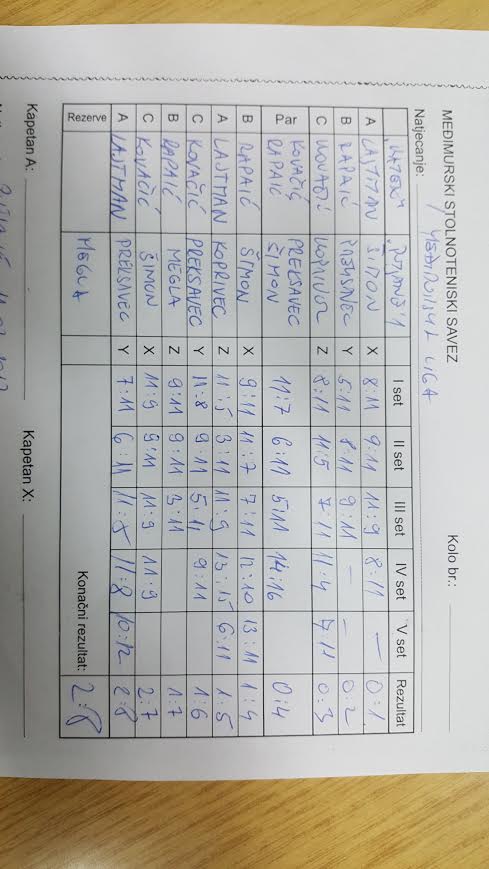 MEĐIMURSKI STOLNOTENISKI SAVEZ
Kolo br.:
Natjecanje: LIGA
I set II set III set IV set V set Rezultat
A LAJTMAN ŠIMON X 8:11 9:11 11:9 8:11 — 0:1
B RAPAIĆ Y 5:11 8:11 9:11 — — 0:2
C KOVAČIĆ Z 8:11 11:5 7:11 11:4 7:11 0:3
Par KOVAČIĆ RAPAIĆ PREKSAVEC ŠIMON 11:7 6:11 5:11 14:16 0:4
B RAPAIĆ ŠIMON X 9:11 11:7 7:11 12:10 13:11 1:4
A LAJTMAN KOPRIVEC Z 11:5 3:11 11:9 13:15 6:11 1:5
C KOVAČIĆ PREKSAVEC Y 11:8 9:11 5:11 9:11 1:6
B RAPAIĆ MEGLA Z 9:11 9:11 3:11 1:7
C KOVAČIĆ ŠIMON X 11:9 9:11 11:9 11:9 2:7
A LAJTMAN PREKSAVEC Y 7:11 6:11 11:8 11:8 10:12 2:8
Rezerve MEGLA Konačni rezultat: 2:8
Kapetan A: Kapetan X: